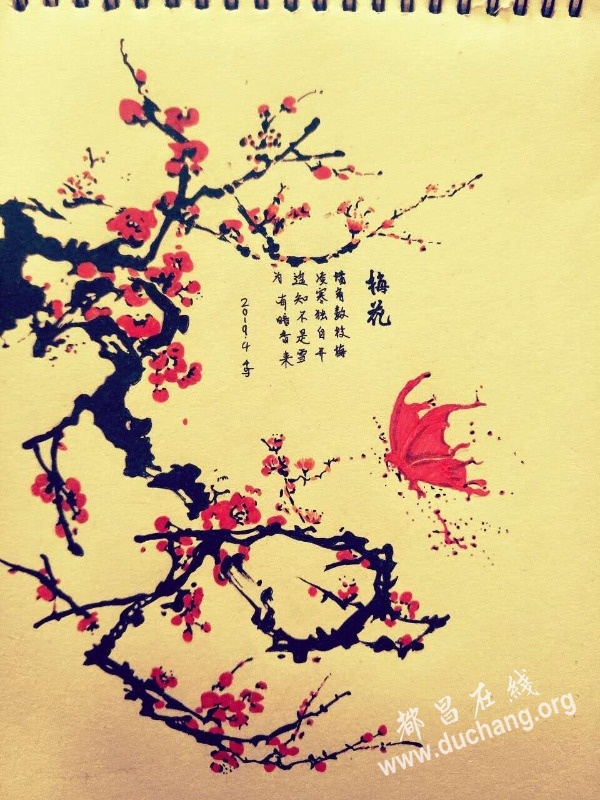 梅花
墙角数枝梅
凌寒独自开
遥知不是雪
为有暗香来
2019.4
都昌在线
www.duchang.org